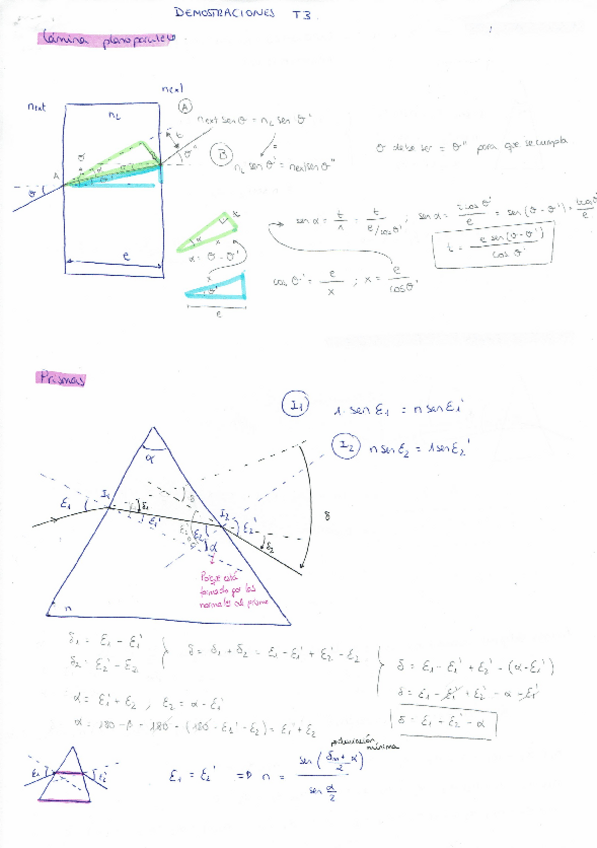 DEMOSTRACIONES T3
Lámina planoparalela
next
nL
next
A
next sen θ = nL sen θ'
B
nL sen θ' = next sen θ''
θ debe ser = θ'' para que se cumpla
A
θ
θ'
θ''
t
e
α
x
α = θ - θ'
sen α = t/x = t/(e/cosθ') ; sen α = t cosθ'/e = sen(θ - θ') = t cosθ'/e
t = e sen(θ - θ')/cos θ'
x
θ'
e
cos θ' = e/x ; x = e/cosθ'
Prismas
I1
1 · sen ε1 = n sen ε1'
I2
n sen ε2 = 1 sen ε2'
α
ε1
I1
δ1
ε1'
δ
I2
ε2
ε2'
δ2
δ
α
Porque está
formado por las
normales al prisma
n
δ1 = ε1 - ε1'
δ2 = ε2' - ε2
δ = δ1 + δ2 = ε1 - ε1' + ε2' - ε2
α = ε1' + ε2 , ε2 = α - ε1'
α = 180 - β = 180 - (180 - ε1' - ε2) = ε1' + ε2
δ = ε1 - ε1' + ε2' - (α - ε1')
δ = ε1 - ε1' + ε2' - α - ε1'
δ = ε1 - ε2' - α
ε1
ε2'
ε1 = ε2' => n = sen((δm + α)/2)/sen(α/2)
mínima